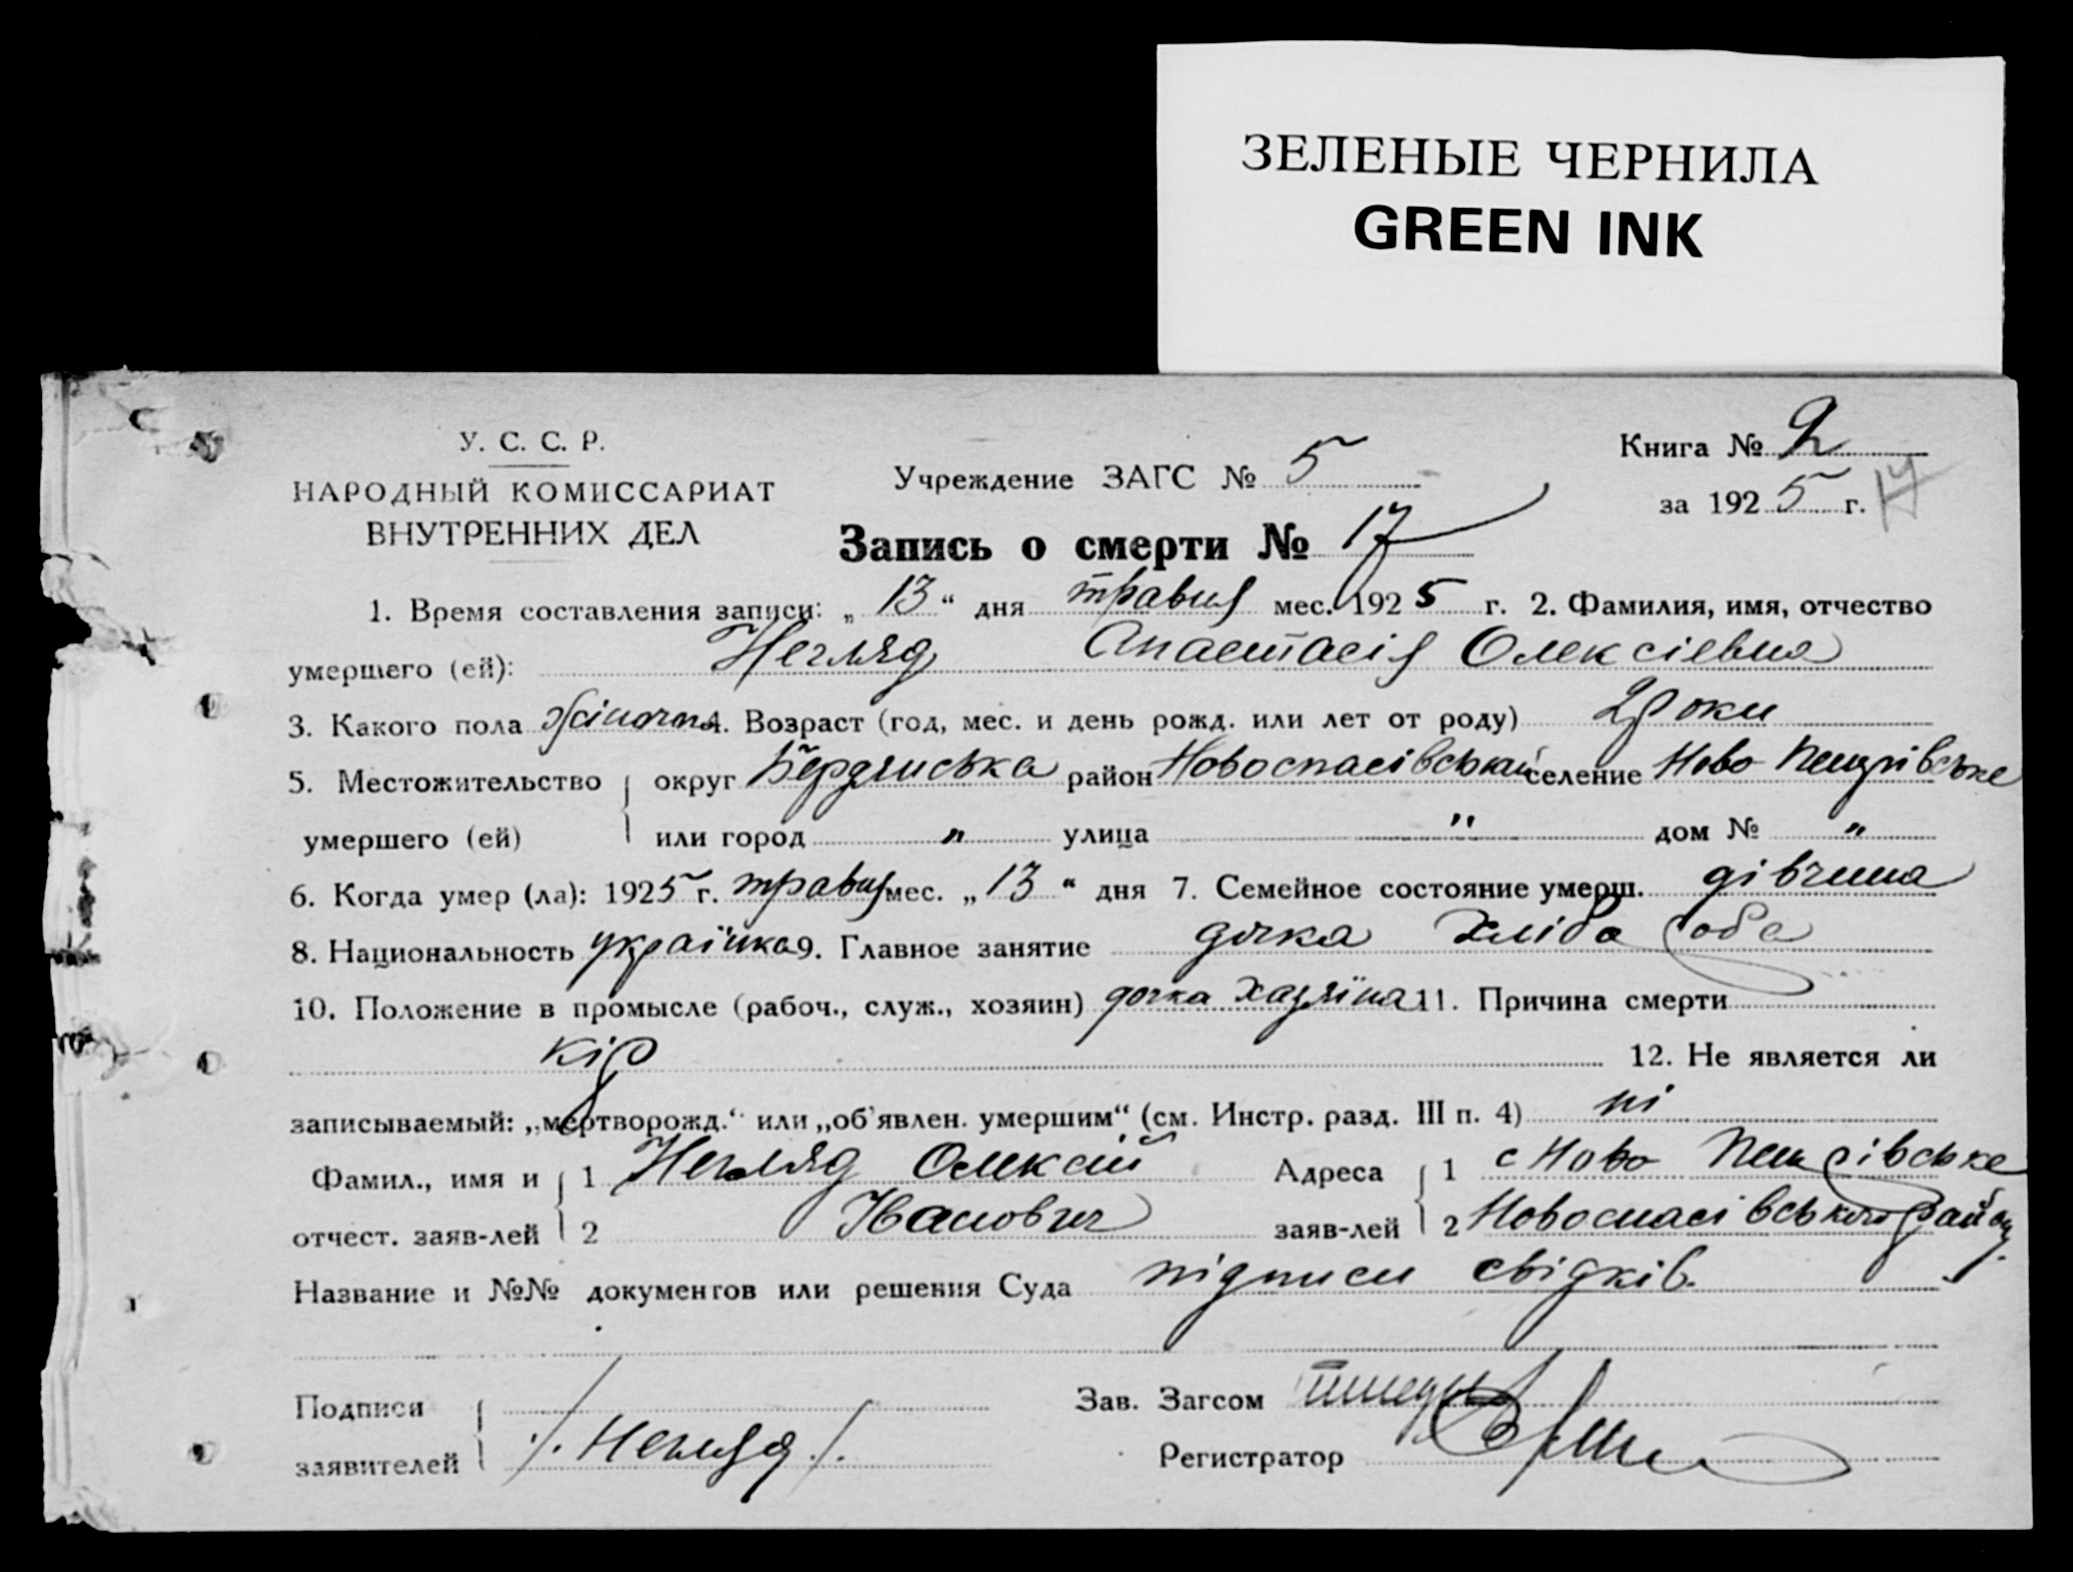 ЗЕЛЕНЫЕ ЧЕРНИЛА
GREEN INK
У. С. С. Р.
НАРОДНЫЙ КОМИССАРИАТ
ВНУТРЕННИХ ДЕЛ
Учреждение ЗАГС № 5
Книга № 2
за 1925 г. 17
Запись о смерти № 17
1. Время составления записи: „13“ дня травня мес. 1925 г. 2. Фамилия, имя, отчество
умершего (ей): Негляд Анастасія Олексіевна
3. Какого пола жіночоп 4. Возраст (год, мес. и день рожд. или лет от роду) 2 роки
5. Местожительство округ Бердянська район Новоспасівський селение Ново Петрівське
умершего (ей) или город " улица " дом № "
6. Когда умер (ла): 1925 г. травня мес. „13“ дня 7. Семейное состояние умерш. дівчина
8. Национальность українка 9. Главное занятие дочка хлібороба
10. Положение в промысле (рабоч., служ., хозяин) дочка хазяїна 11. Причина смерти
кір 12. Не является ли
записываемый: „мертворожд.“ или „об'явлен. умершим“ (см. Инстр. разд. III п. 4) ні
Фамил., имя и 1 Негляд Олексій Адреса 1 с Ново Петрівське
отчест. заяв-лей 2 Іванович заяв-лей 2 Новоспасівського району.
Название и №№ документов или решения Суда підписи свідків.
Подписи Зав. Загсом
заявителей /. Негляд /. Регистратор